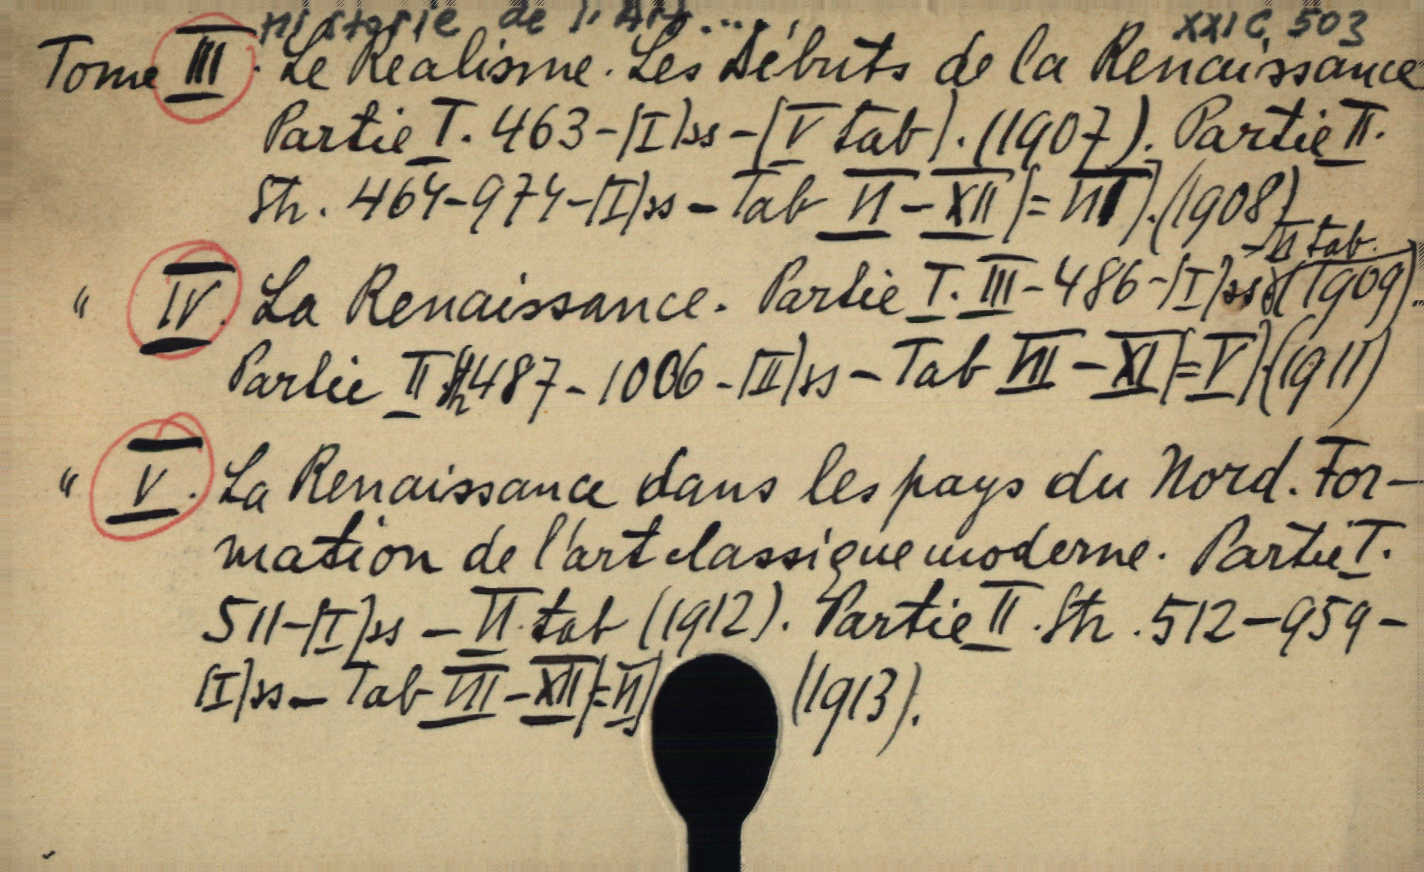 Histoire de l'Art... XXIC 503
Tome III. Le Réalisme. Les Débuts de la Renaissance
Partie I. 463-[I]ss-[V tab]. (1907). Partie II.
Sh. 464-974-[I]ss - Tab VI - XII [=VII]. (1908)
- VI tab.
" IV. La Renaissance. Partie I. III-486-[I]ss. (1909).
Partie II Sh 487-1006-[II]ss - Tab VII - XI [=V]. (1911)
" V. La Renaissance dans les pays du Nord. For-
mation de l'art classique moderne. Partie I.
511-[I]ss - VI. tab (1912). Partie II. Sh. 512-959-
[I]ss - Tab VII - XII [=VI] (1913).